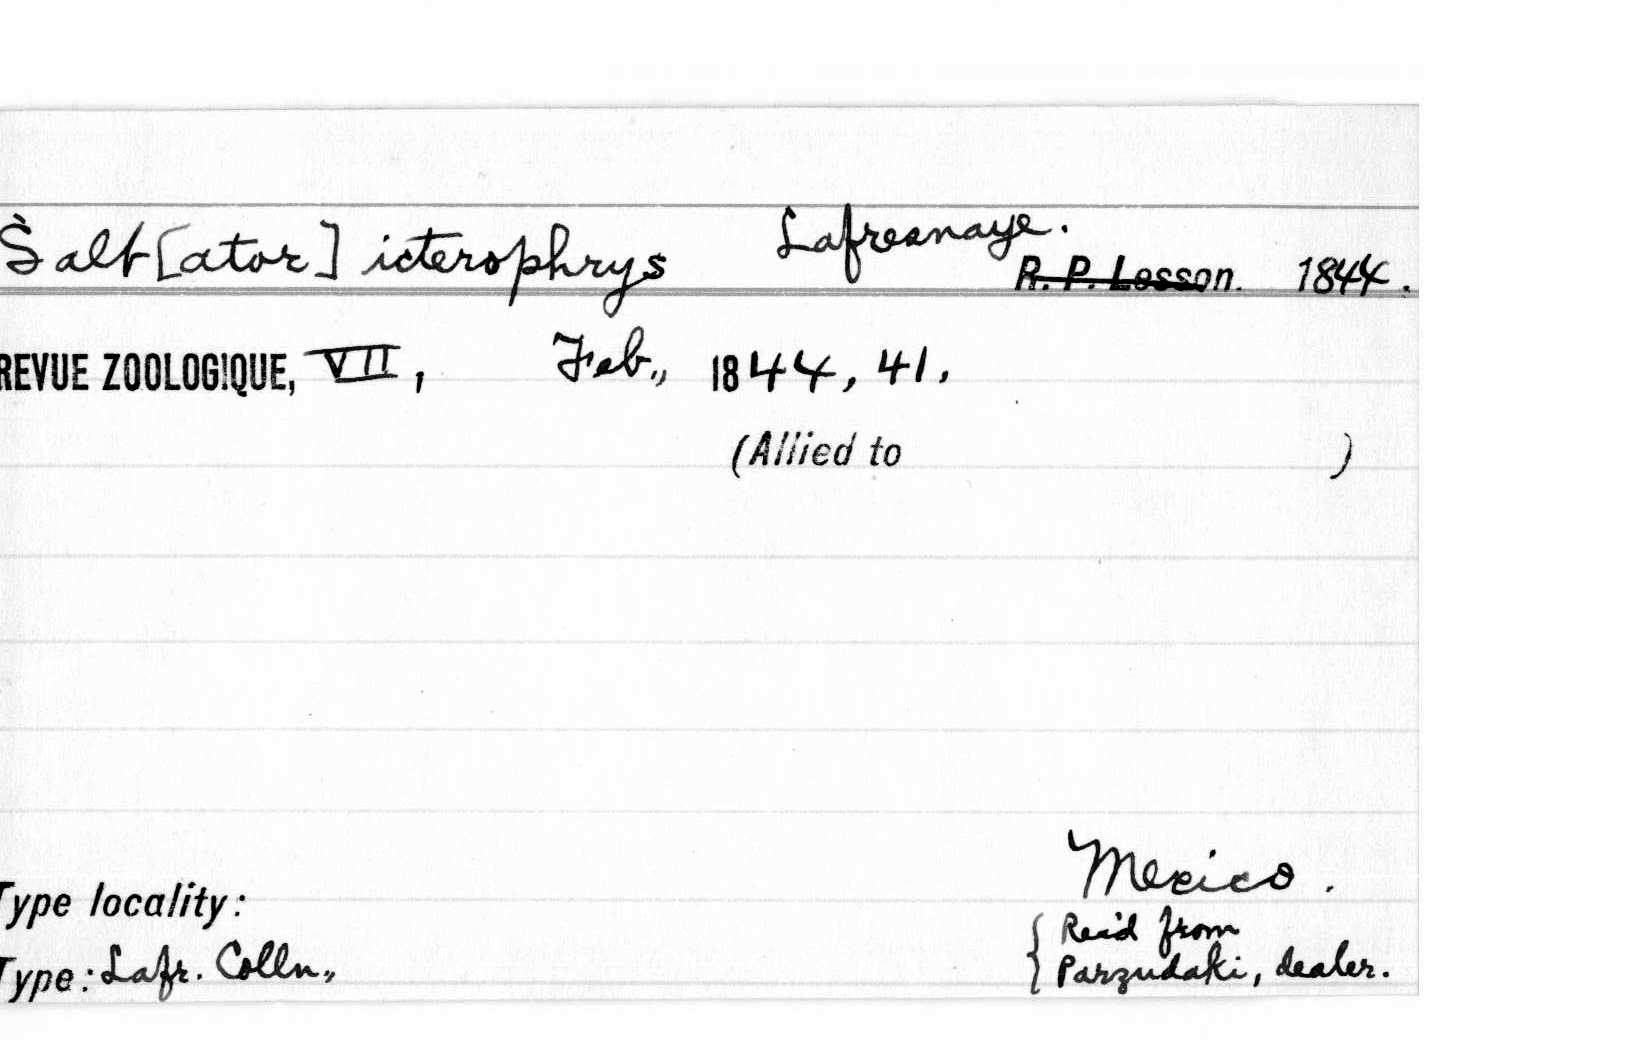 Salt[ator] icterophrys Lafresnaye.
R. P. Lesson. 1844.
REVUE ZOOLOGIQUE, VII, Feb., 1844, 41,
(Allied to )
Mexico.
Type locality:
{ Rec'd from
Type: Lafr. Colln., Parzudaki, dealer.